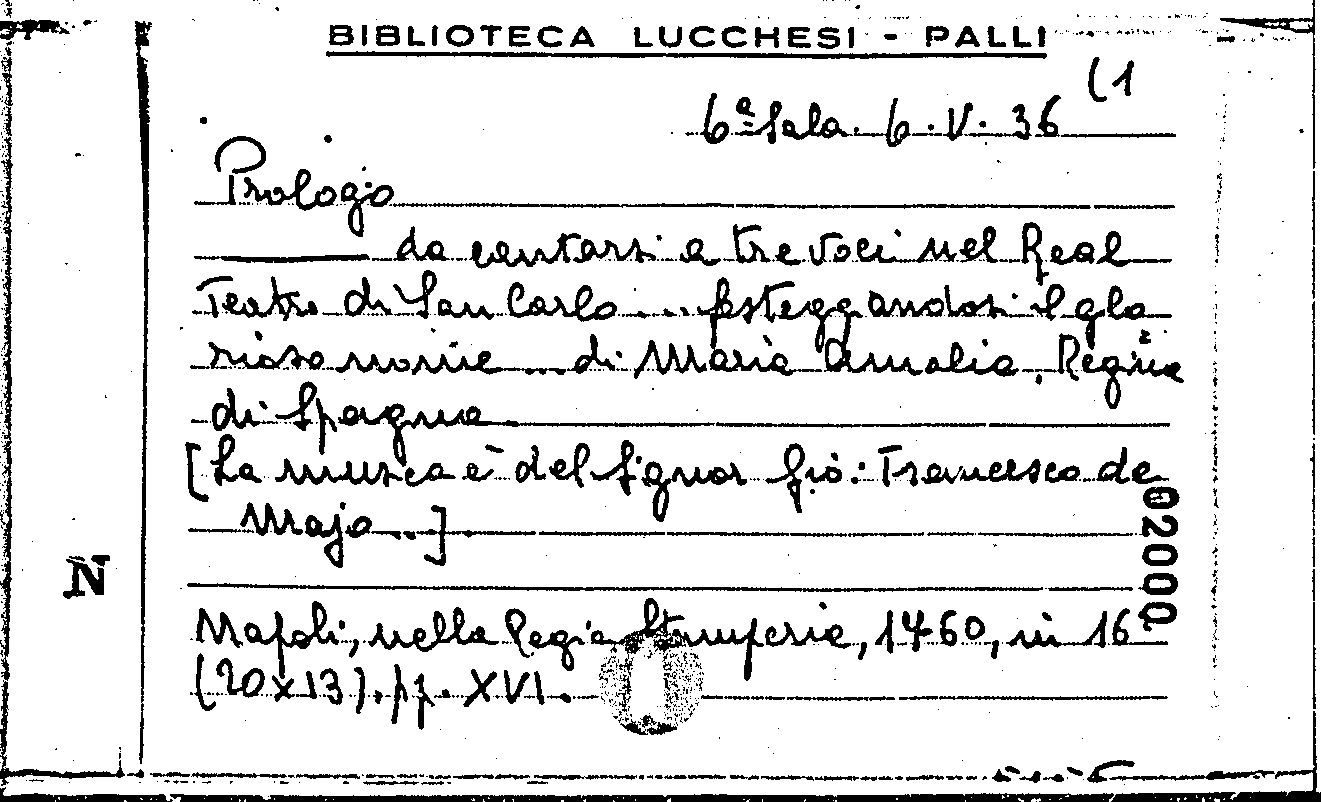 BIBLIOTECA LUCCHESI - PALLI
(1
6ª Sala. 6. V. 36
Prologo
da cantarsi a tre voci nel Real
Teatro di San Carlo ... festeggandosi il glo
rioso nome ... di Maria Amalia, Regina
di Spagna
[La musica è del Signor Giò: Francesco de
Majo ...]
N
02000
Napoli, nella Regia Stamperia, 1760, in 16º
(20x13). pp. XVI.